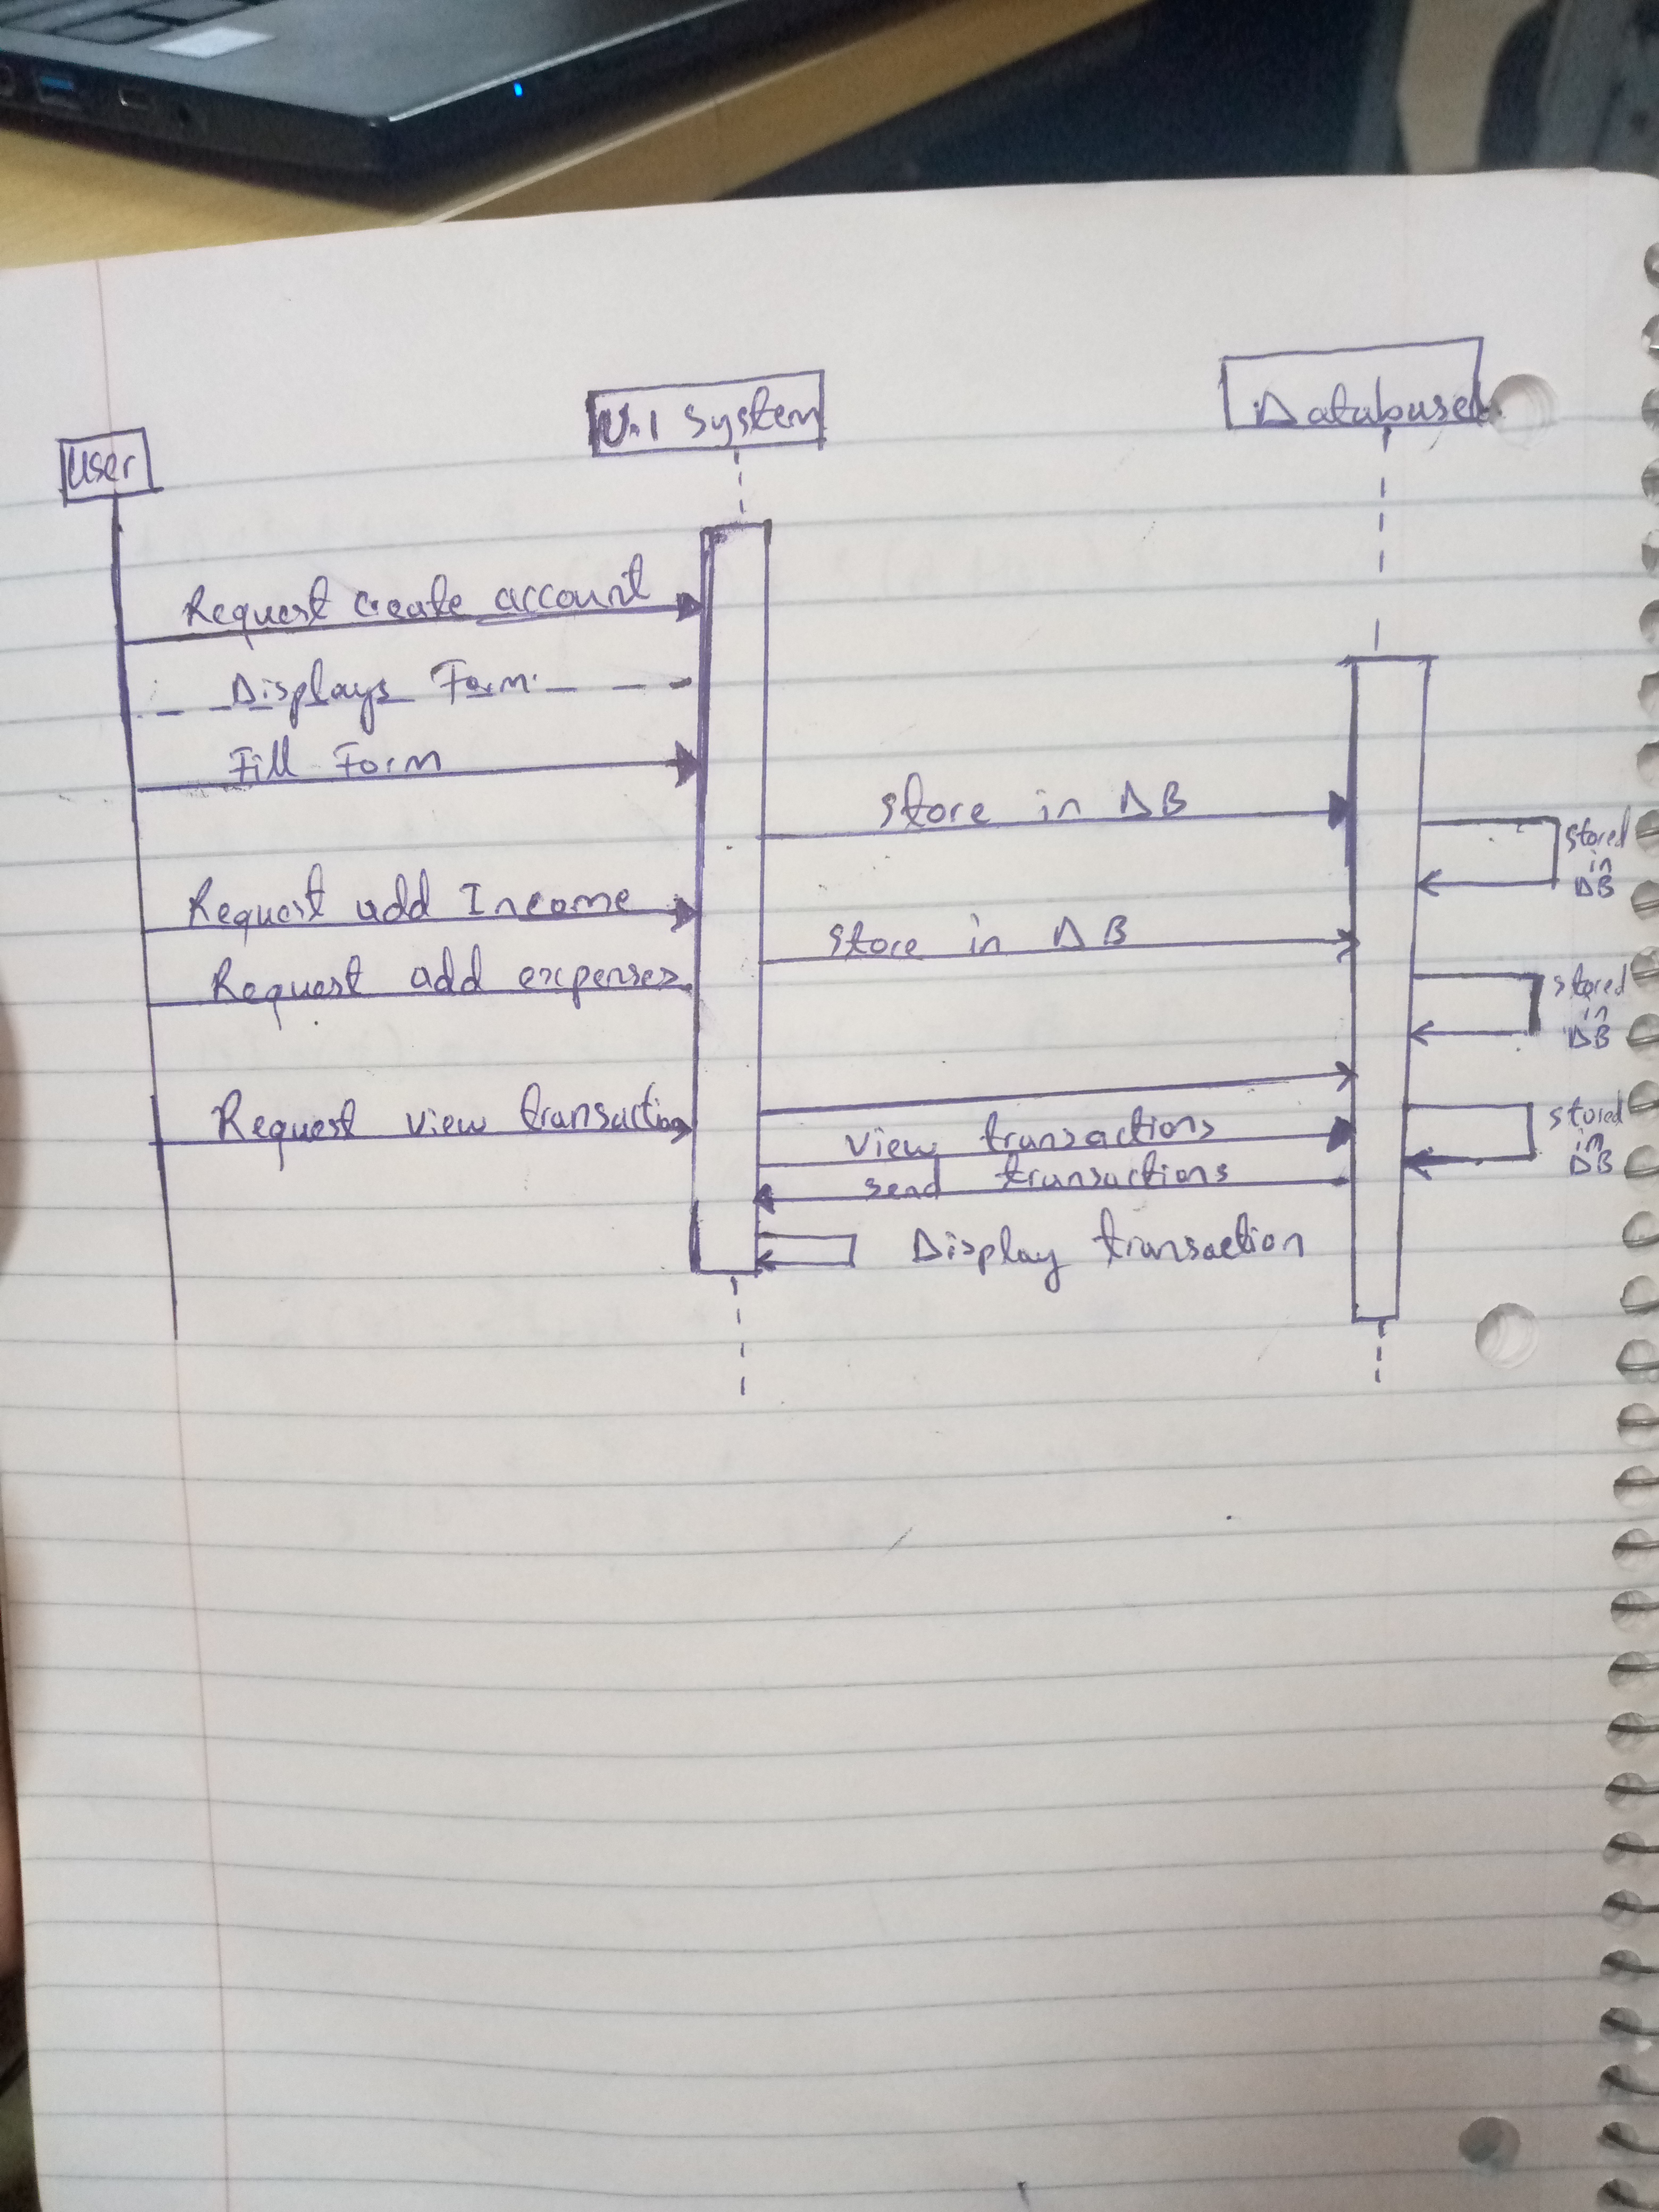 User
U.I System
Database
Request create account
Displays Form
Fill Form
store in DB
stored
in
DB
Request add Income
store in DB
Request add expenses
stored
in
DB
Request view transaction
view transactions
stored
in
DB
send transactions
Display transaction